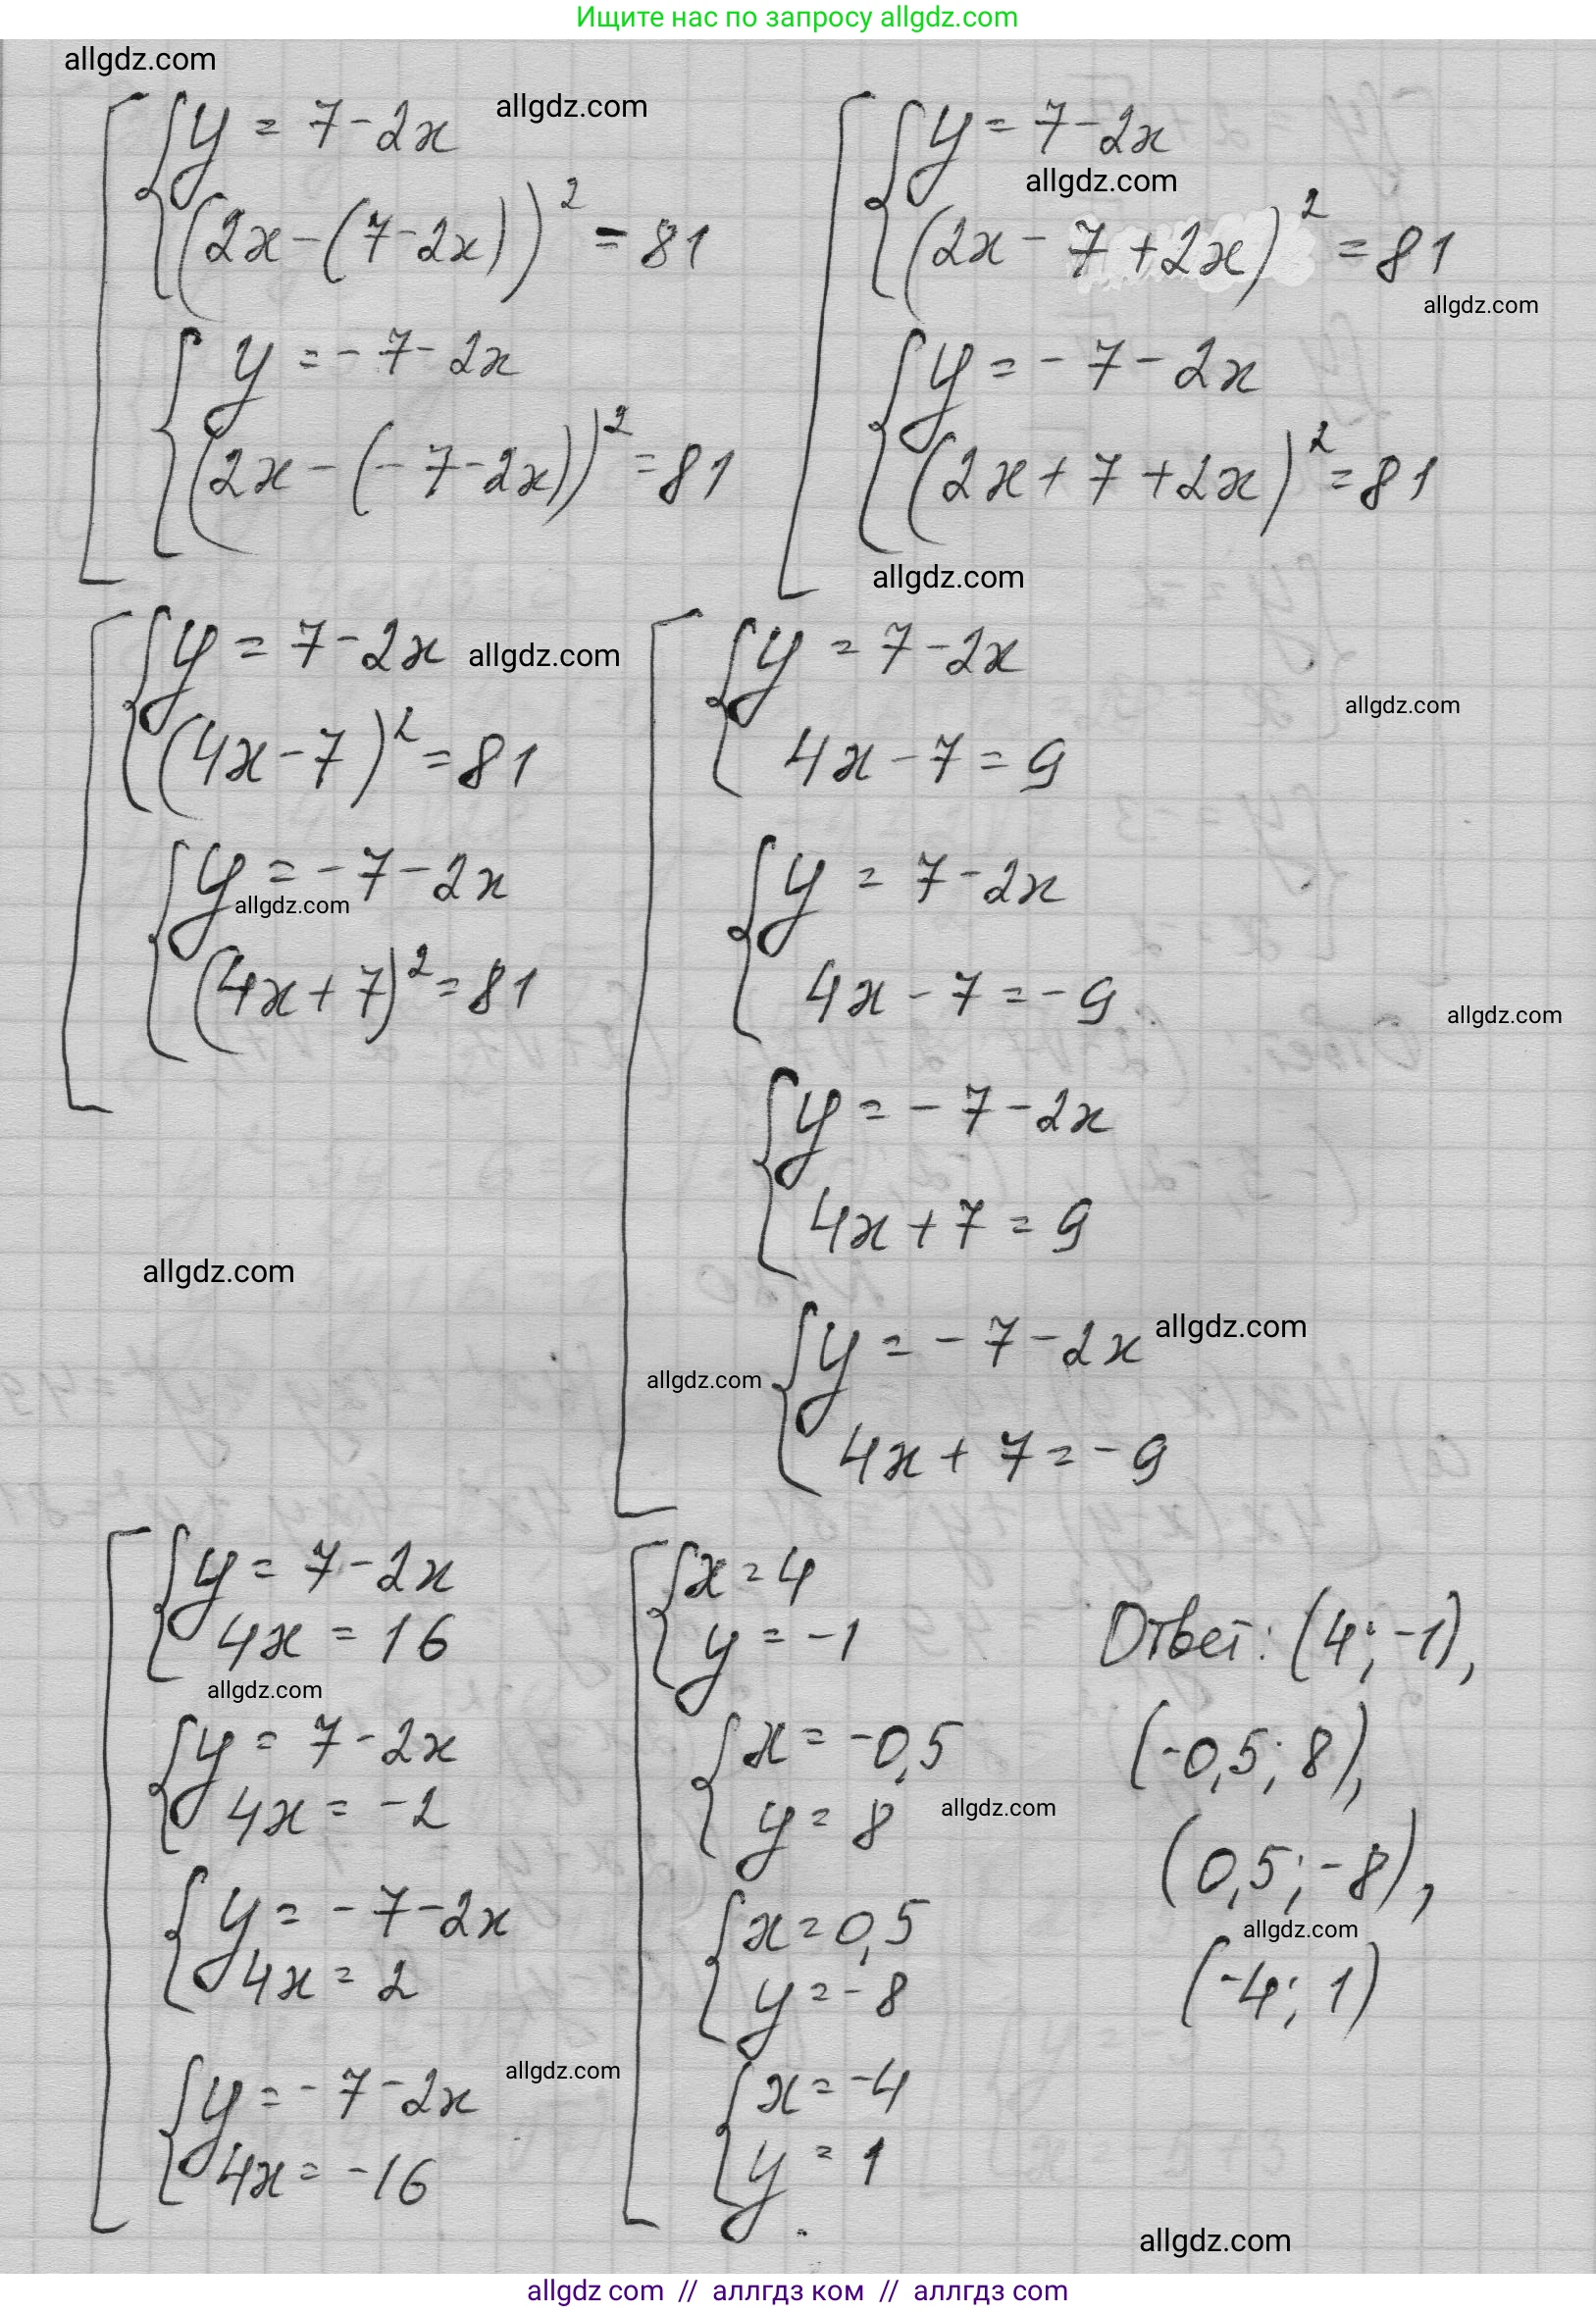 Ищите нас по запросу allgdz.com
allgdz.com
y = 7 - 2x
allgdz.com
(2x - (7 - 2x))² = 81
y = - 7 - 2x
(2x - (- 7 - 2x))² = 81
y = 7 - 2x
allgdz.com
(2x - 7 + 2x)² = 81
allgdz.com
y = - 7 - 2x
(2x + 7 + 2x)² = 81
allgdz.com
y = 7 - 2x
allgdz.com
(4x - 7)² = 81
y = - 7 - 2x
allgdz.com
(4x + 7)² = 81
allgdz.com
y = 7 - 2x
allgdz.com
4x - 7 = 9
y = 7 - 2x
4x - 7 = - 9
allgdz.com
y = - 7 - 2x
4x + 7 = 9
y = - 7 - 2x
allgdz.com
allgdz.com
4x + 7 = - 9
y = 7 - 2x
4x = 16
allgdz.com
y = 7 - 2x
4x = - 2
y = - 7 - 2x
4x = 2
y = - 7 - 2x
allgdz.com
4x = - 16
x = 4
y = - 1
x = - 0,5
y = 8
allgdz.com
x = 0,5
y = - 8
x = - 4
y = 1
Ответ: (4; -1),
(-0,5; 8),
(0,5; -8),
allgdz.com
(-4; 1)
allgdz.com
allgdz com // аллгдз ком // аллгдз com